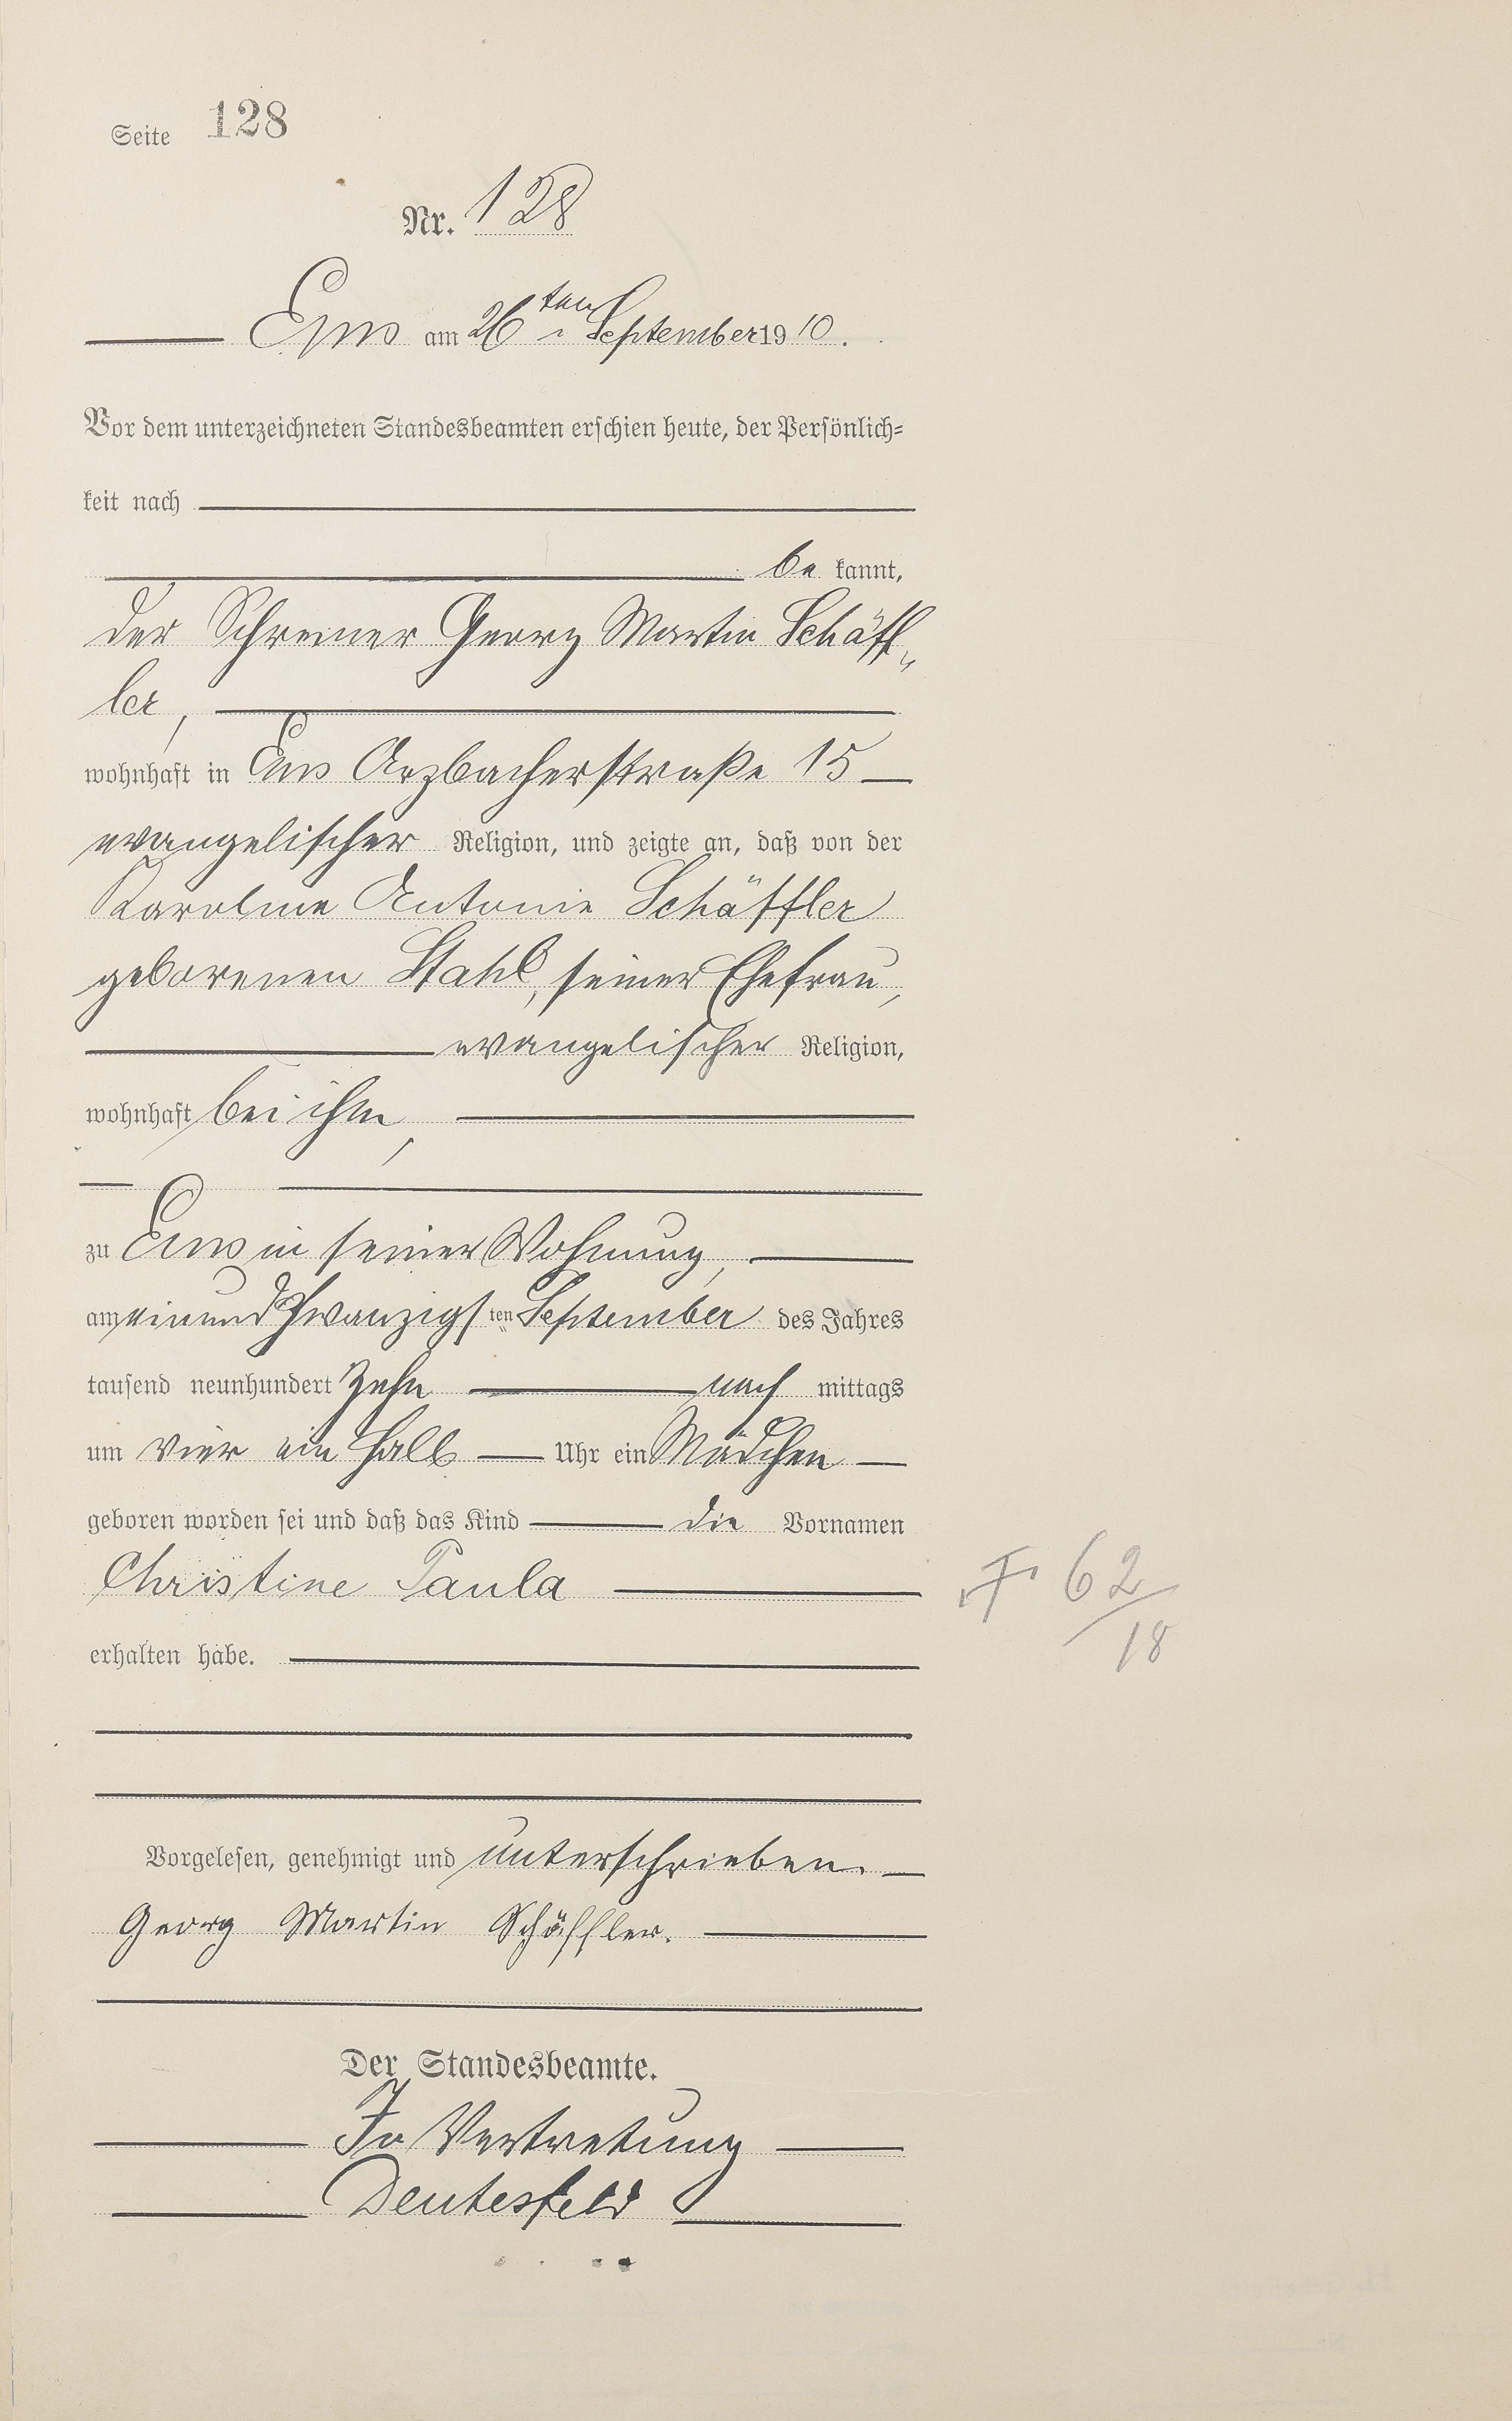 Seite 128
Nr. 128
Ems am 26ten September 1910.
Vor dem unterzeichneten Standesbeamten erschien heute, der Persönlich-
keit nach
be kannt,
der Schreiner Georg Martin Schäff-
ler,
wohnhaft in Ems Arzbacherstraße 15
evangelischer Religion, und zeigte an, daß von der
Karoline Antonie Schäffler
geborenen Stahl, seiner Ehefrau,
evangelischer Religion,
wohnhaft bei ihm,
zu Ems in seiner Wohnung,
am einundzwanzigsten September des Jahres
tausend neunhundert zehn nach mittags
um vier ein halb Uhr ein Mädchen
geboren worden sei und daß das Kind die Vornamen
Christine Paula
erhalten habe.
Vorgelesen, genehmigt und unterschrieben.
Georg Martin Schäffler.
Der Standesbeamte.
In Vertretung
Deutesfeld
62
18